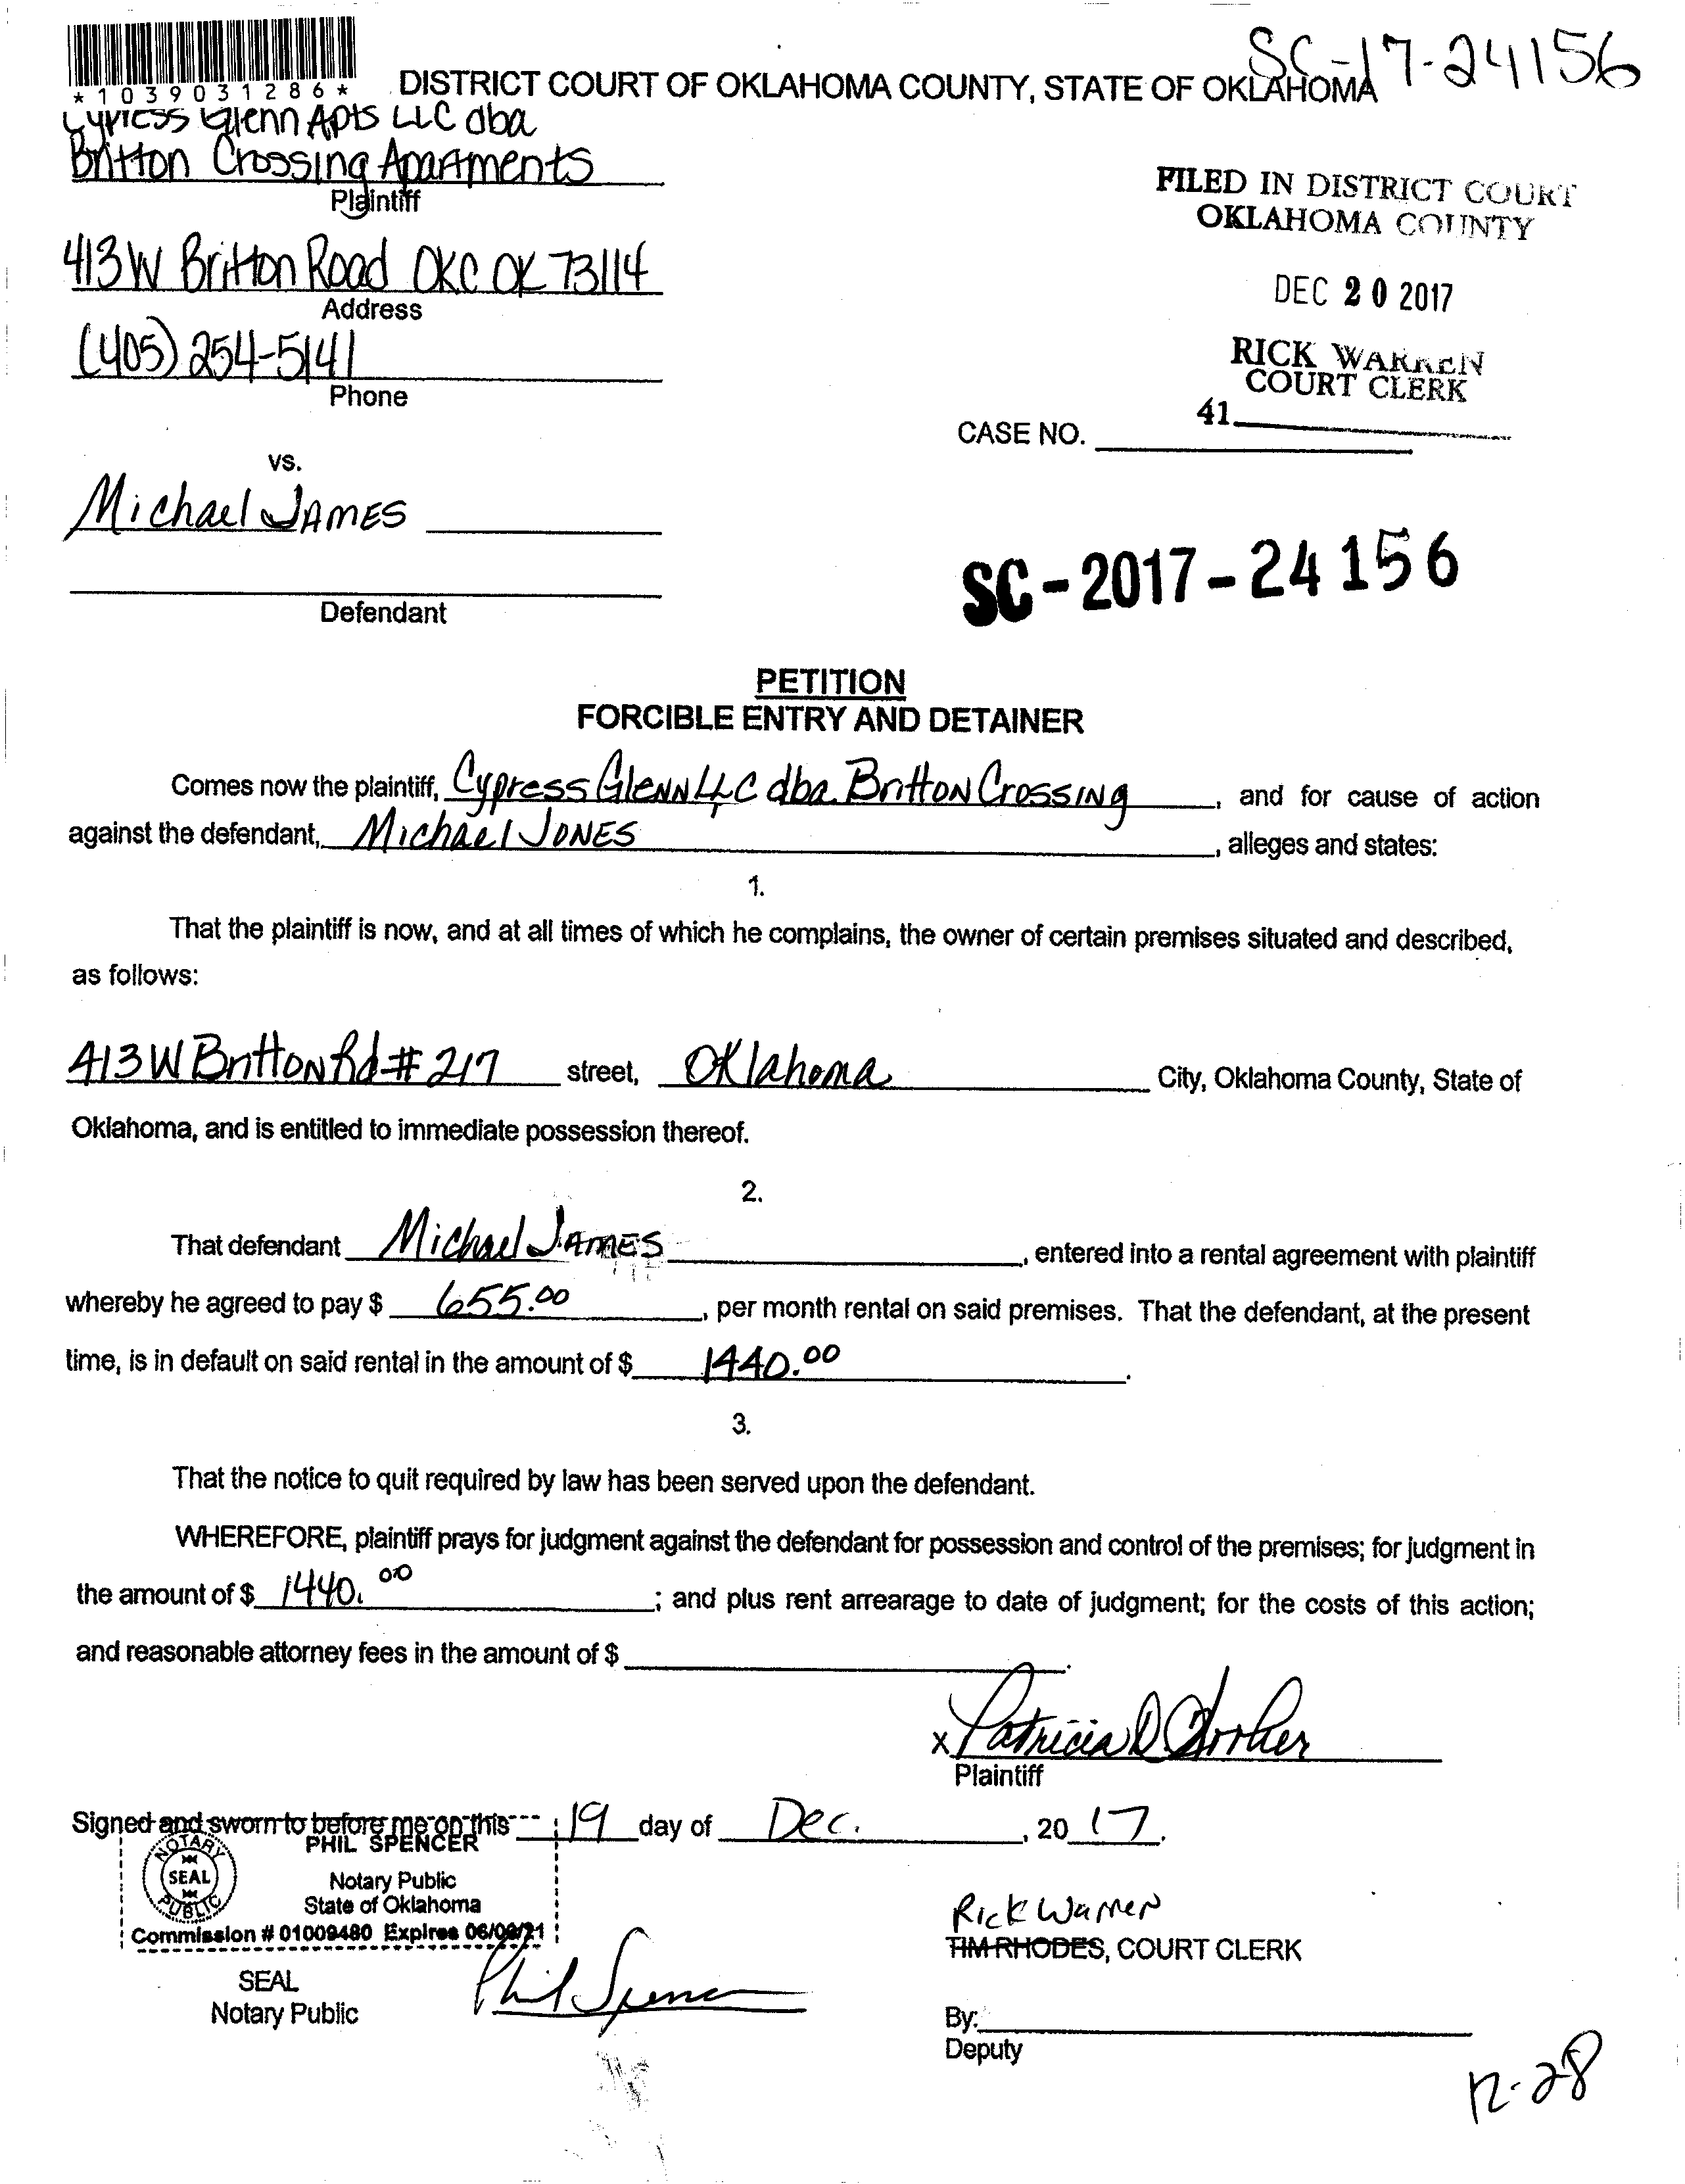 SC-17-24156
*1039031286*
DISTRICT COURT OF OKLAHOMA COUNTY, STATE OF OKLAHOMA
Cypress Glenn Apts LLC dba
Britton Crossing Apartments
Plaintiff
FILED IN DISTRICT COURT
OKLAHOMA COUNTY
413 W Britton Road OKC OK 73114
Address
DEC 20 2017
(405) 254-5141
Phone
RICK WARREN
COURT CLERK
41
CASE NO.
vs.
Michael JAMES
Defendant
SC-2017-24156
PETITION
FORCIBLE ENTRY AND DETAINER
Comes now the plaintiff, Cypress Glenn LLC dba Britton Crossing, and for cause of action
against the defendant, Michael JONES, alleges and states:
1.
That the plaintiff is now, and at all times of which he complains, the owner of certain premises situated and described,
as follows:
413 W Britton Rd # 217 street, Oklahoma City, Oklahoma County, State of
Oklahoma, and is entitled to immediate possession thereof.
2.
That defendant Michael JAMES, entered into a rental agreement with plaintiff
whereby he agreed to pay $ 655.00, per month rental on said premises. That the defendant, at the present
time, is in default on said rental in the amount of $ 1440.00.
3.
That the notice to quit required by law has been served upon the defendant.
WHEREFORE, plaintiff prays for judgment against the defendant for possession and control of the premises; for judgment in
the amount of $ 1440.00; and plus rent arrearage to date of judgment; for the costs of this action;
and reasonable attorney fees in the amount of $.
x Patricia D.
Plaintiff
Signed and sworn to before me on this 19 day of Dec., 2017.
PHIL SPENCER
Notary Public
State of Oklahoma
NOTARY
SEAL
PUBLIC
Commission # 01009480 Expires 06/09/21
Rick Warren
TIM RHODES, COURT CLERK
SEAL
Notary Public
Phil Spencer
By:
Deputy
12-28